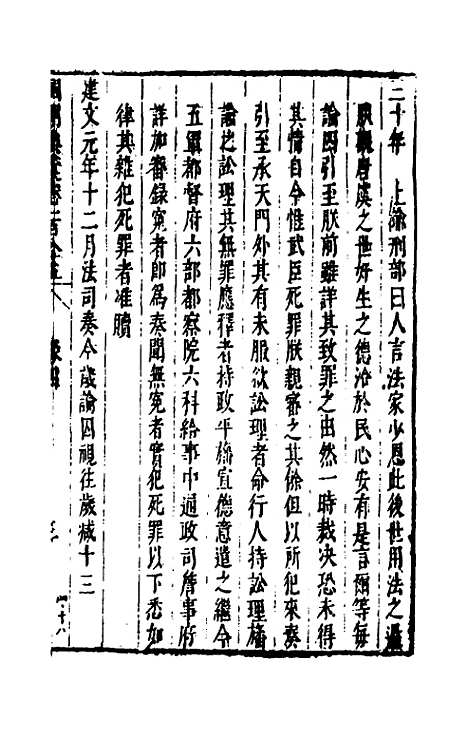 三十年　上諭刑部曰人言法家少恩此後世用法之過
朕觀唐虞之世好生之德洽於民心安有是言爾等每
論囚引至朕前雖詳其致罪之由然一時裁决恐未得
其情自今惟武臣死罪朕親審之其餘但以所犯來奏
引至承天門外其有未服欲訟理者命行人持訟理旛
諭之訟理其無罪應釋者持政平旛宣德意遣之繼令
五軍都督府六部都察院六科給事中通政司詹事府
詳加審録寃者即為奏聞無寃者實犯死罪以下悉如
律其雜犯死罪者准贖
建文元年十二月法司奏今歲論囚視往歲减十三